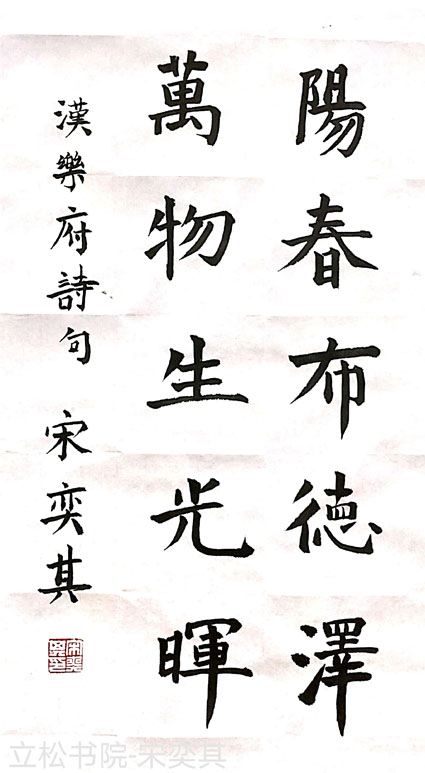 陽春布德澤
萬物生光暉
漢樂府詩句 宋奕其
立松书院-宋奕其